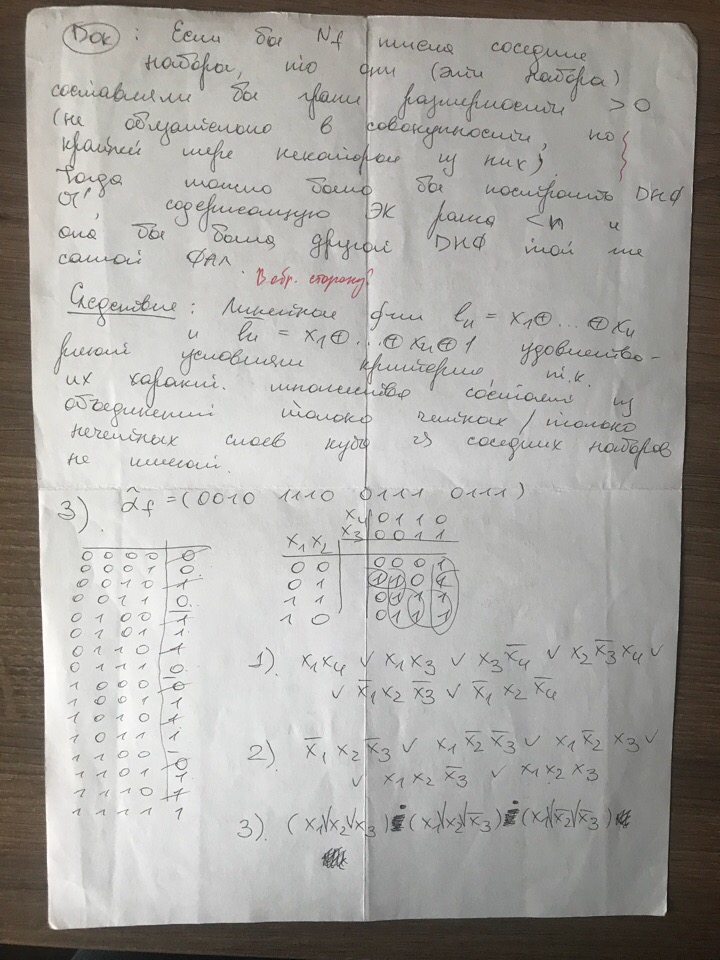 Док : Если бы N_f имела соседние
наборы, то они (эти наборы)
составляли бы грани размерности > 0
(не обязательно в совокупности, но
крайней мере некоторые из них)
Тогда можно было бы построить ДНФ
α', содержащую ЭК ранга < n и
она бы была другой ДНФ той же
самой ФАЛ.
В обр. сторону?
Следствие : Линейные ф-ии l_n = x_1 ⊕ ... ⊕ x_n
и l̅_n = x_1 ⊕ ... ⊕ x_n ⊕ 1 удовлетво-
ряют условиям критерия т.к.
их характ. множества состоят из
объединений только чётных / только
нечётных слоев куба и соседних наборов
не имеют.
3). α̃_f = (0010 1110 0111 0111)
x_4 0 1 1 0
x_1 x_2 x_3 0 0 1 1
0 0 0 0 0 1
0 1 1 1 0 1
1 1 0 1 1 1
1 0 0 1 1 1
0 0 0 0 0
0 0 0 1 0
0 0 1 0 1
0 0 1 1 0
0 1 0 0 1
0 1 0 1 1
0 1 1 0 1
0 1 1 1 0
1 0 0 0 0
1 0 0 1 1
1 0 1 0 1
1 0 1 1 1
1 1 0 0 0
1 1 0 1 1
1 1 1 0 1
1 1 1 1 1
1). x_1 x_4 ∨ x_1 x_3 ∨ x_3 x̅_4 ∨ x_2 x̅_3 x_4 ∨
∨ x̅_1 x_2 x̅_3 ∨ x̅_1 x_2 x̅_4
2). x̅_1 x_2 x̅_3 ∨ x_1 x̅_2 x̅_3 ∨ x_1 x̅_2 x_3 ∨
∨ x_1 x_2 x̅_3 ∨ x_1 x_2 x_3
3). (x_1 ∨ x_2 ∨ x_3) · (x_1 ∨ x_2 ∨ x̅_3) · (x_1 ∨ x̅_2 ∨ x̅_3)